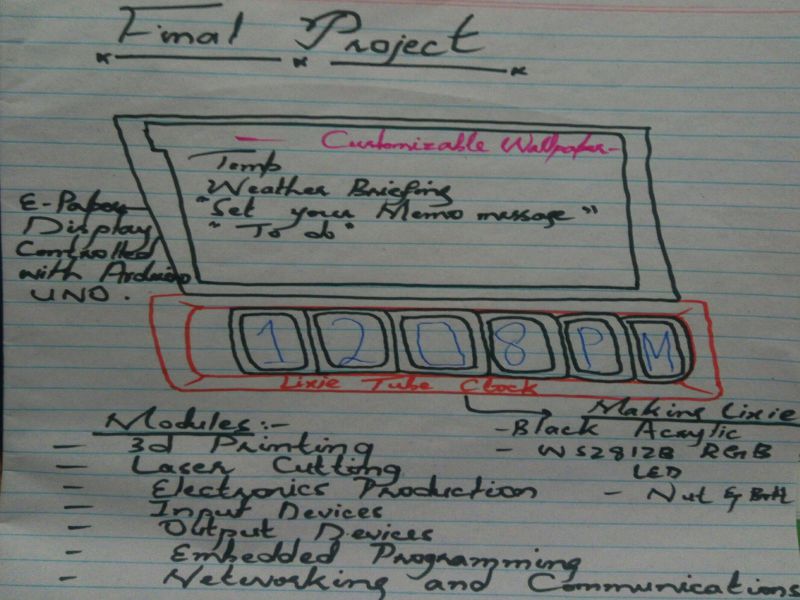 Final Project
Customizable Wallpaper
Temp
Weather Briefing
"Set your Memo message"
"To do"
E-Paper
Display
Controlled
with Arduino
UNO.
1 2 0 8 P M
Lixie Tube Clock
Modules:-
- 3d Printing
- Laser Cutting
- Electronics Production
- Input Devices
- Output Devices
- Embedded Programming
- Networking and Communications
Making Lixie
- Black Acrylic
- WS2812B RGB
LED
- Nut & Bolt